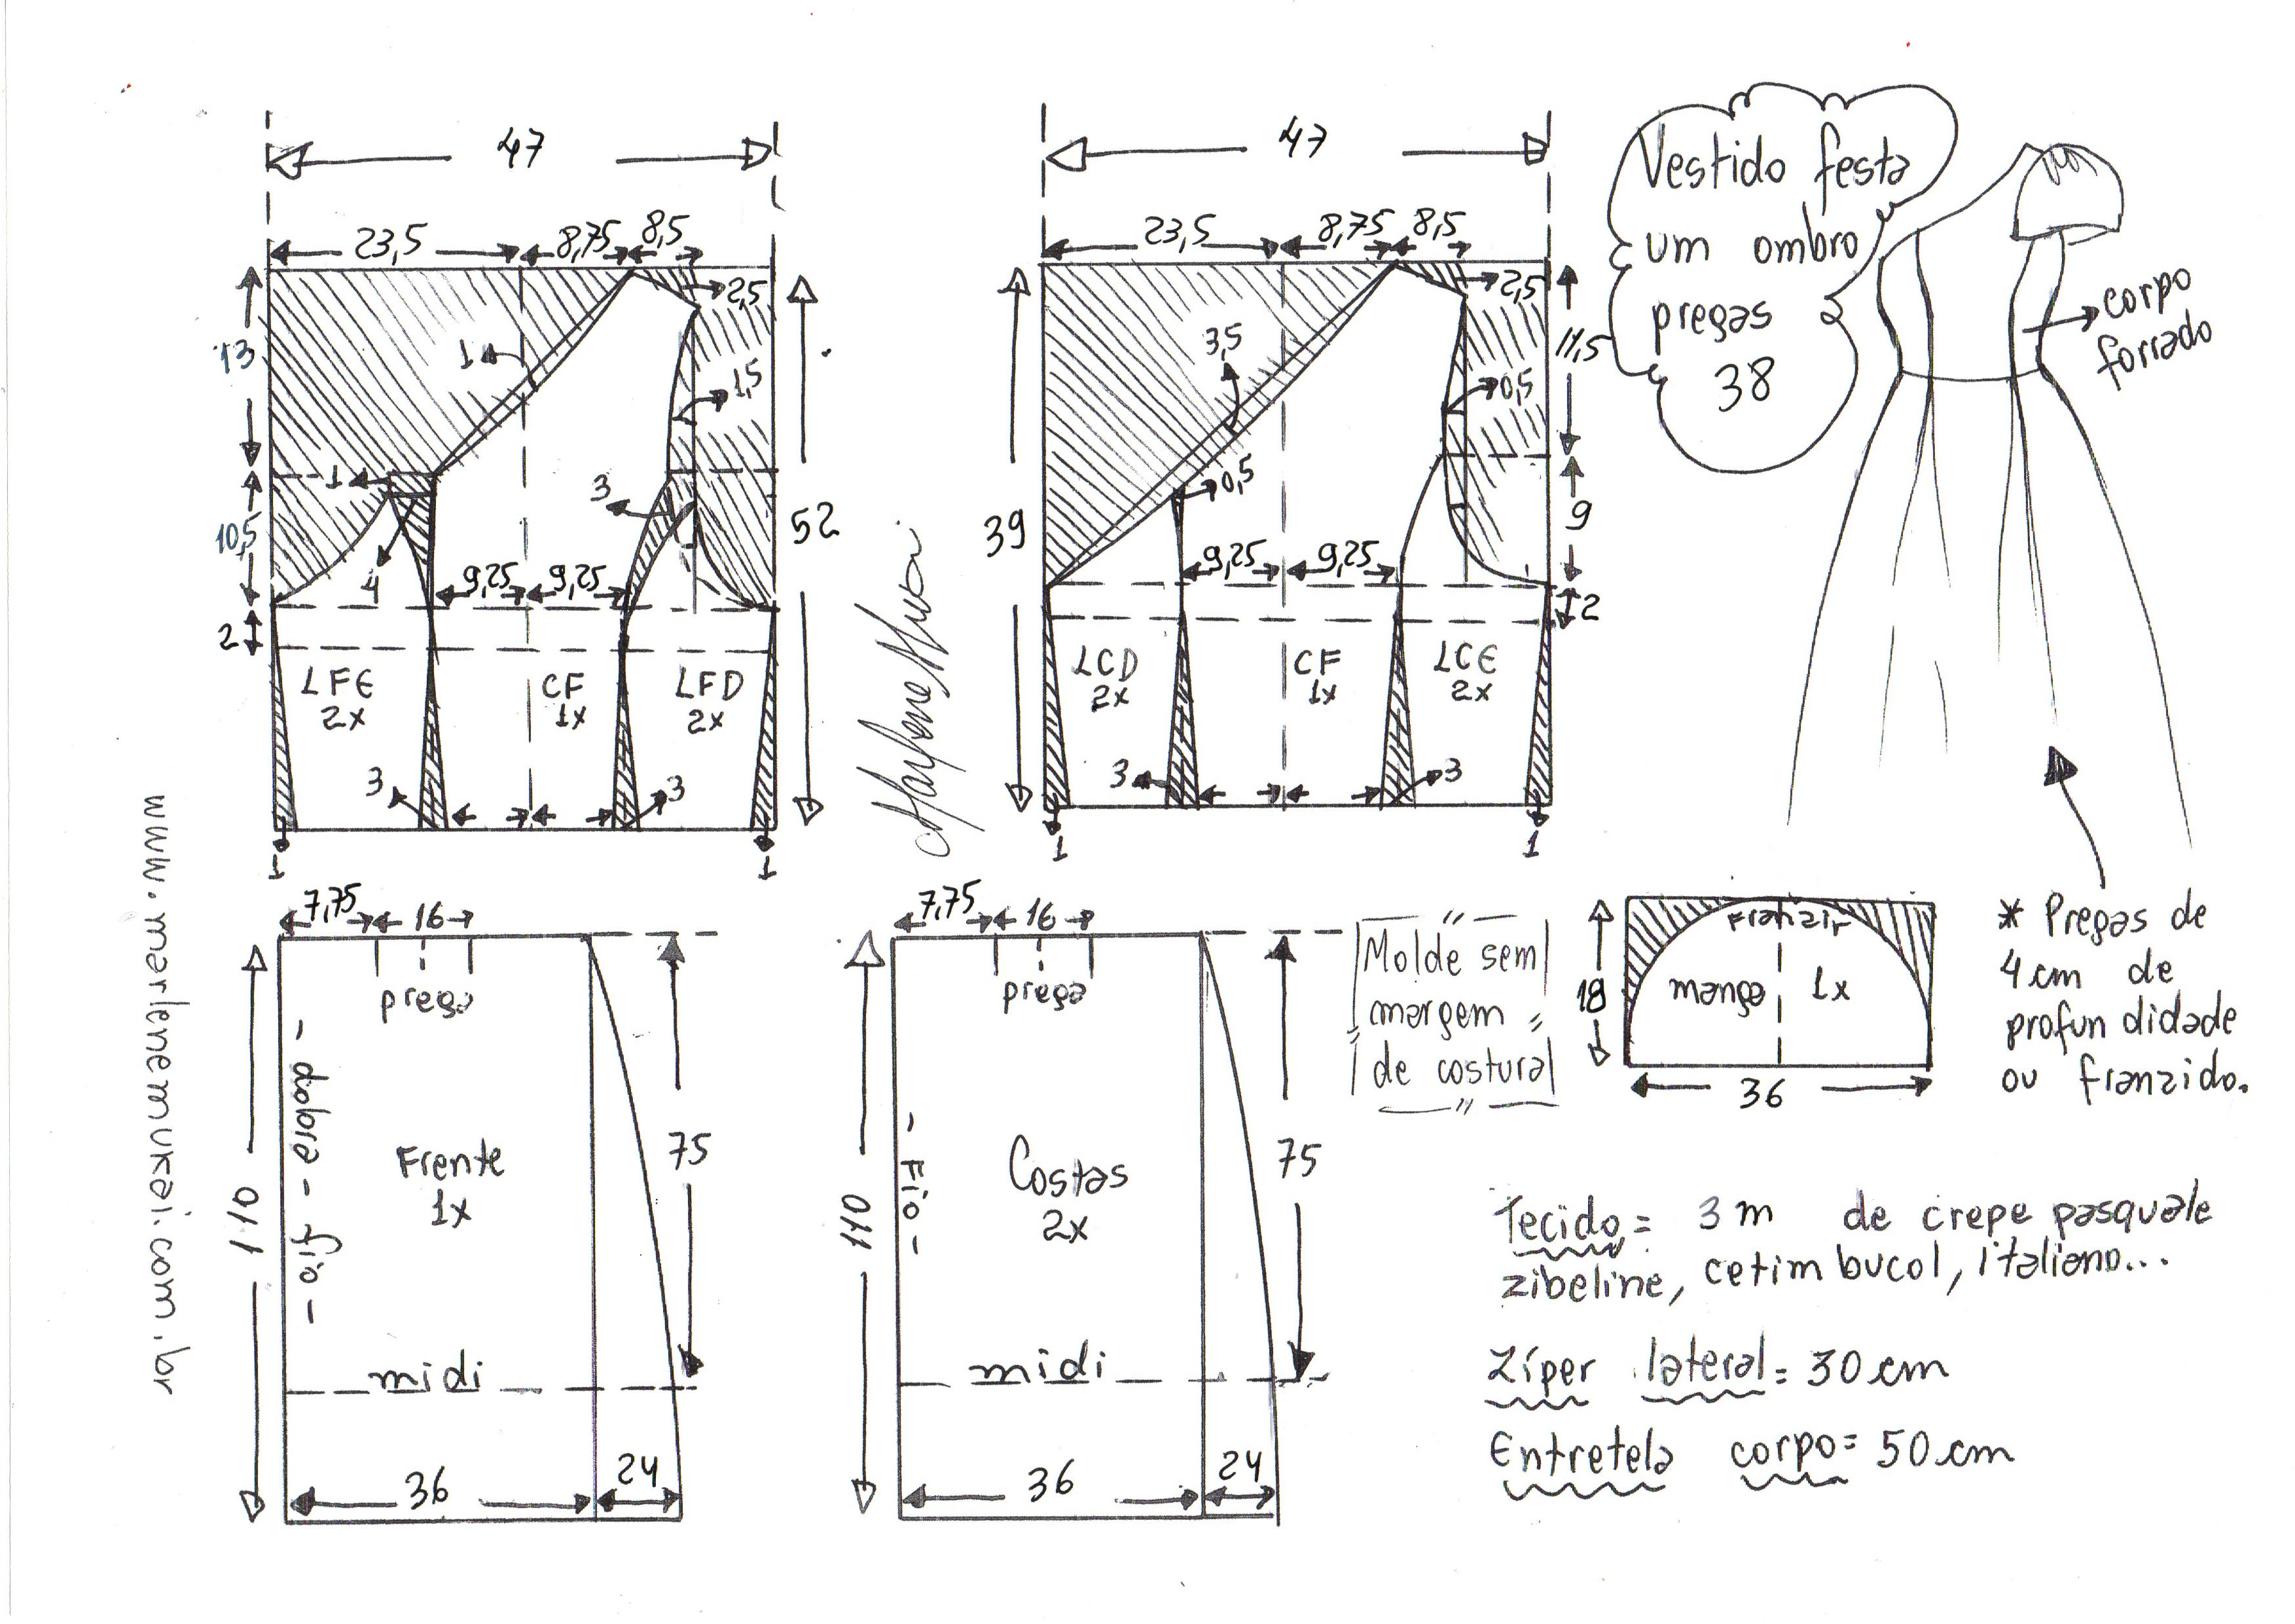 47
23,5
8,75
8,5
2,5
13
1
1,5
1
3
10,5
4
9,25
9,25
52
2
LFE
2x
CF
1x
LFD
2x
3
3
1
1
47
23,5
8,75
8,5
2,5
3,5
11,5
0,5
0,5
39
9,25
9,25
9
2
LCD
2x
CF
1x
LCE
2x
3
3
1
1
Vestido festa
um ombro
pregas
38
corpo
forrado
www.marlenemukai.com.br
7,75
16
prega
110
- dobra - fio -
Frente
1x
75
midi
36
24
7,75
16
prega
110
- Fio -
Costas
2x
75
midi
36
24
Molde sem
margem
de costura
Franzir
manga
1x
18
36
* Pregas de
4 cm de
profun didade
ou franzido.
Tecido = 3 m de crepe pasquale
zibeline, cetim bucol, italiano...
Zíper lateral = 30 cm
Entretela corpo = 50 cm